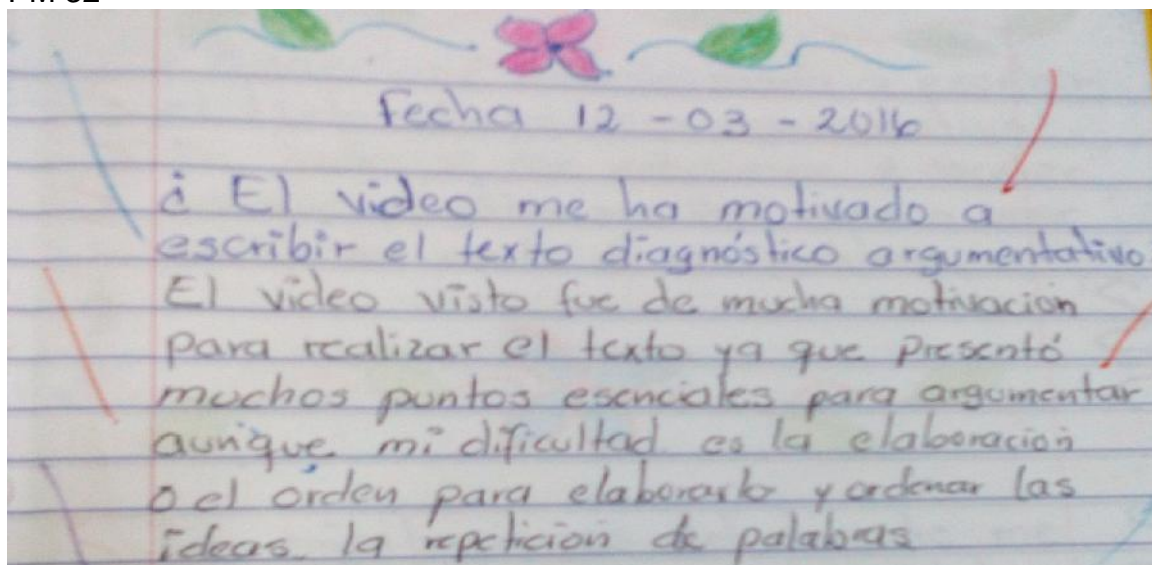 Fecha 12 - 03 - 2016
¿ El video me ha motivado a
escribir el texto diagnóstico argumentativo
El video visto fue de mucha motivación
para realizar el texto ya que presentó
muchos puntos esenciales para argumentar
aunque mi dificultad es la elaboración
o el orden para elaborarlo y ordenar las
ideas la repetición de palabras